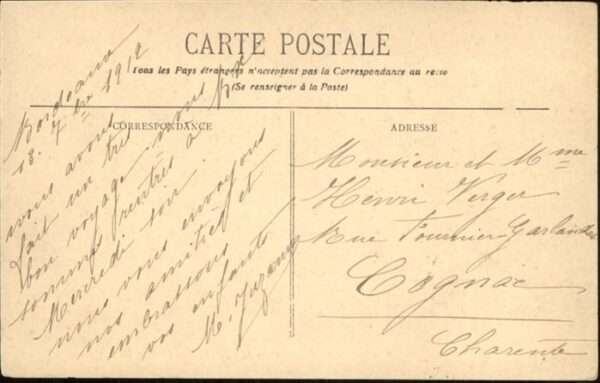 CARTE POSTALE
Tous les Pays étrangers n'acceptent pas la Correspondance au recto
(Se renseigner à la Poste)
CORRESPONDANCE
Bordeaux
18. 7bre 1912
nous avons
fait un très
bon voyage. nous
sommes rentrés à
Mercredi soir.
nous vous envoyons
nos amitiés et
embrassons
vos enfants
M.
ADRESSE
Monsieur et Mme
Henri Verger
Rue Fournier Garlandat
Cognac
Charente